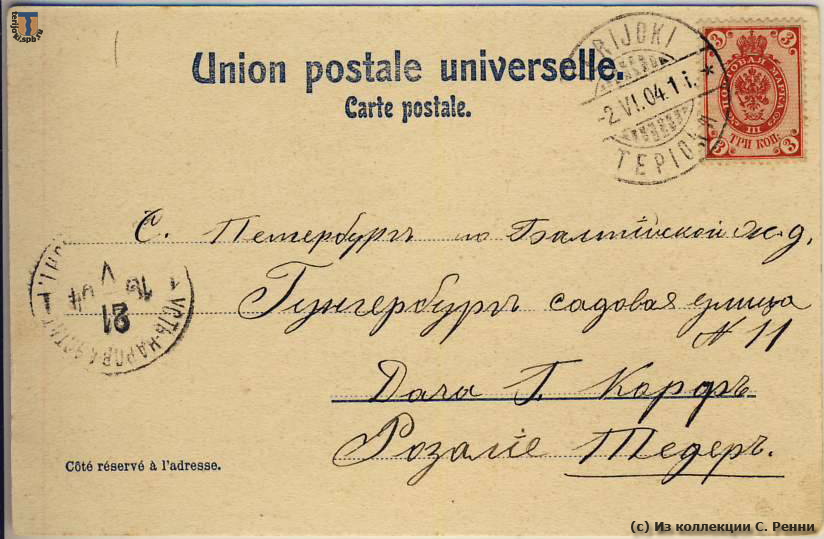 terijoki.spb.ru
Union postale universelle.
Carte postale.
RIJOKI
2.VI.04.1 i.
ТЕРІОК
3 3
ПОЧТОВАЯ МАРКА
III
ТРИ КОП.
3 3
С. Петербургъ по Балтійской ж. д.
Гунгербургъ садовая улица
N 11
Дача Г. Корфъ
Розаліе Тедеръ.
УСТЬ-НАРОВА
16 V 04
21
Côté réservé à l'adresse.
(c) Из коллекции С. Ренни